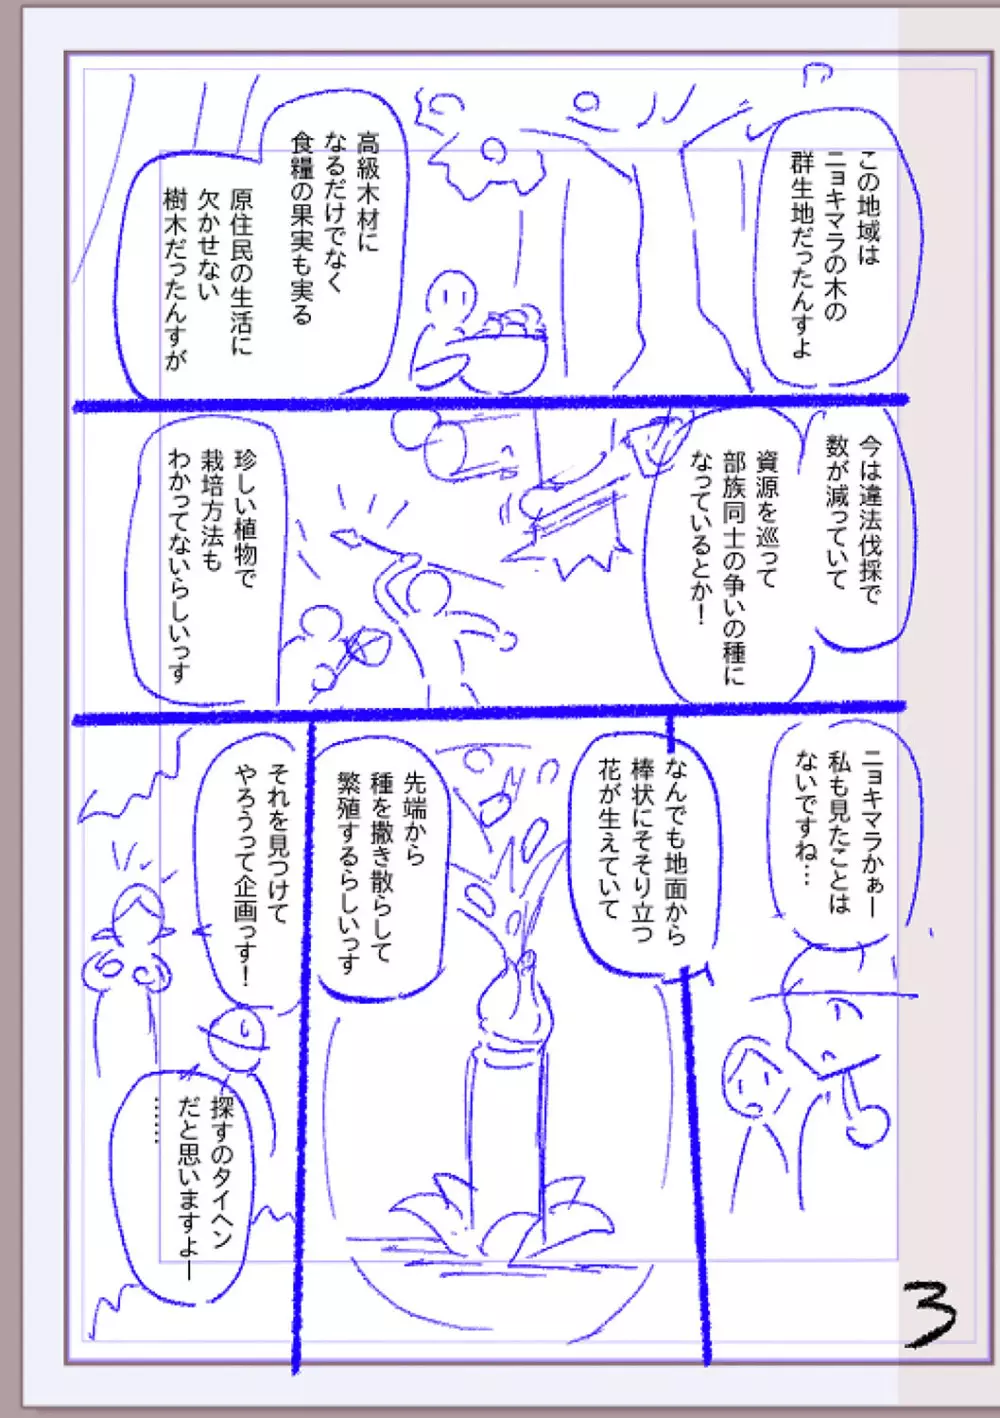 この地域は
ニョキマラの木の
群生地だったんすよ
高級木材に
なるだけでなく
食糧の果実も実る
原住民の生活に
欠かせない
樹木だったんすが
今は違法伐採で
数が減っていて
資源を巡って
部族同士の争いの種に
なっているとか！
珍しい植物で
栽培方法も
わかってないらしいっす
ニョキマラかぁー
私も見たことは
ないですね…
なんでも地面から
棒状にそそり立つ
花が生えていて
先端から
種を撒き散らして
繁殖するらしいっす
それを見つけて
やろうって企画っす！
探すのタイヘン
だと思いますよー
……
3